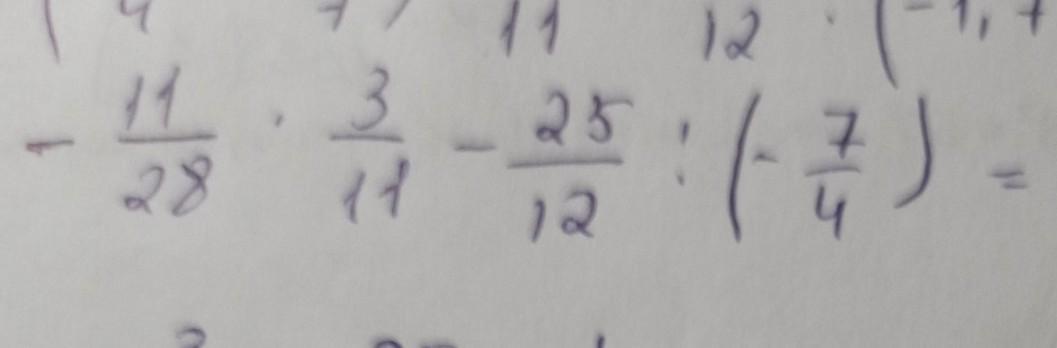 11 12 · (-1,7
- 11/28 · 3/11 - 25/12 : (- 7/4) =